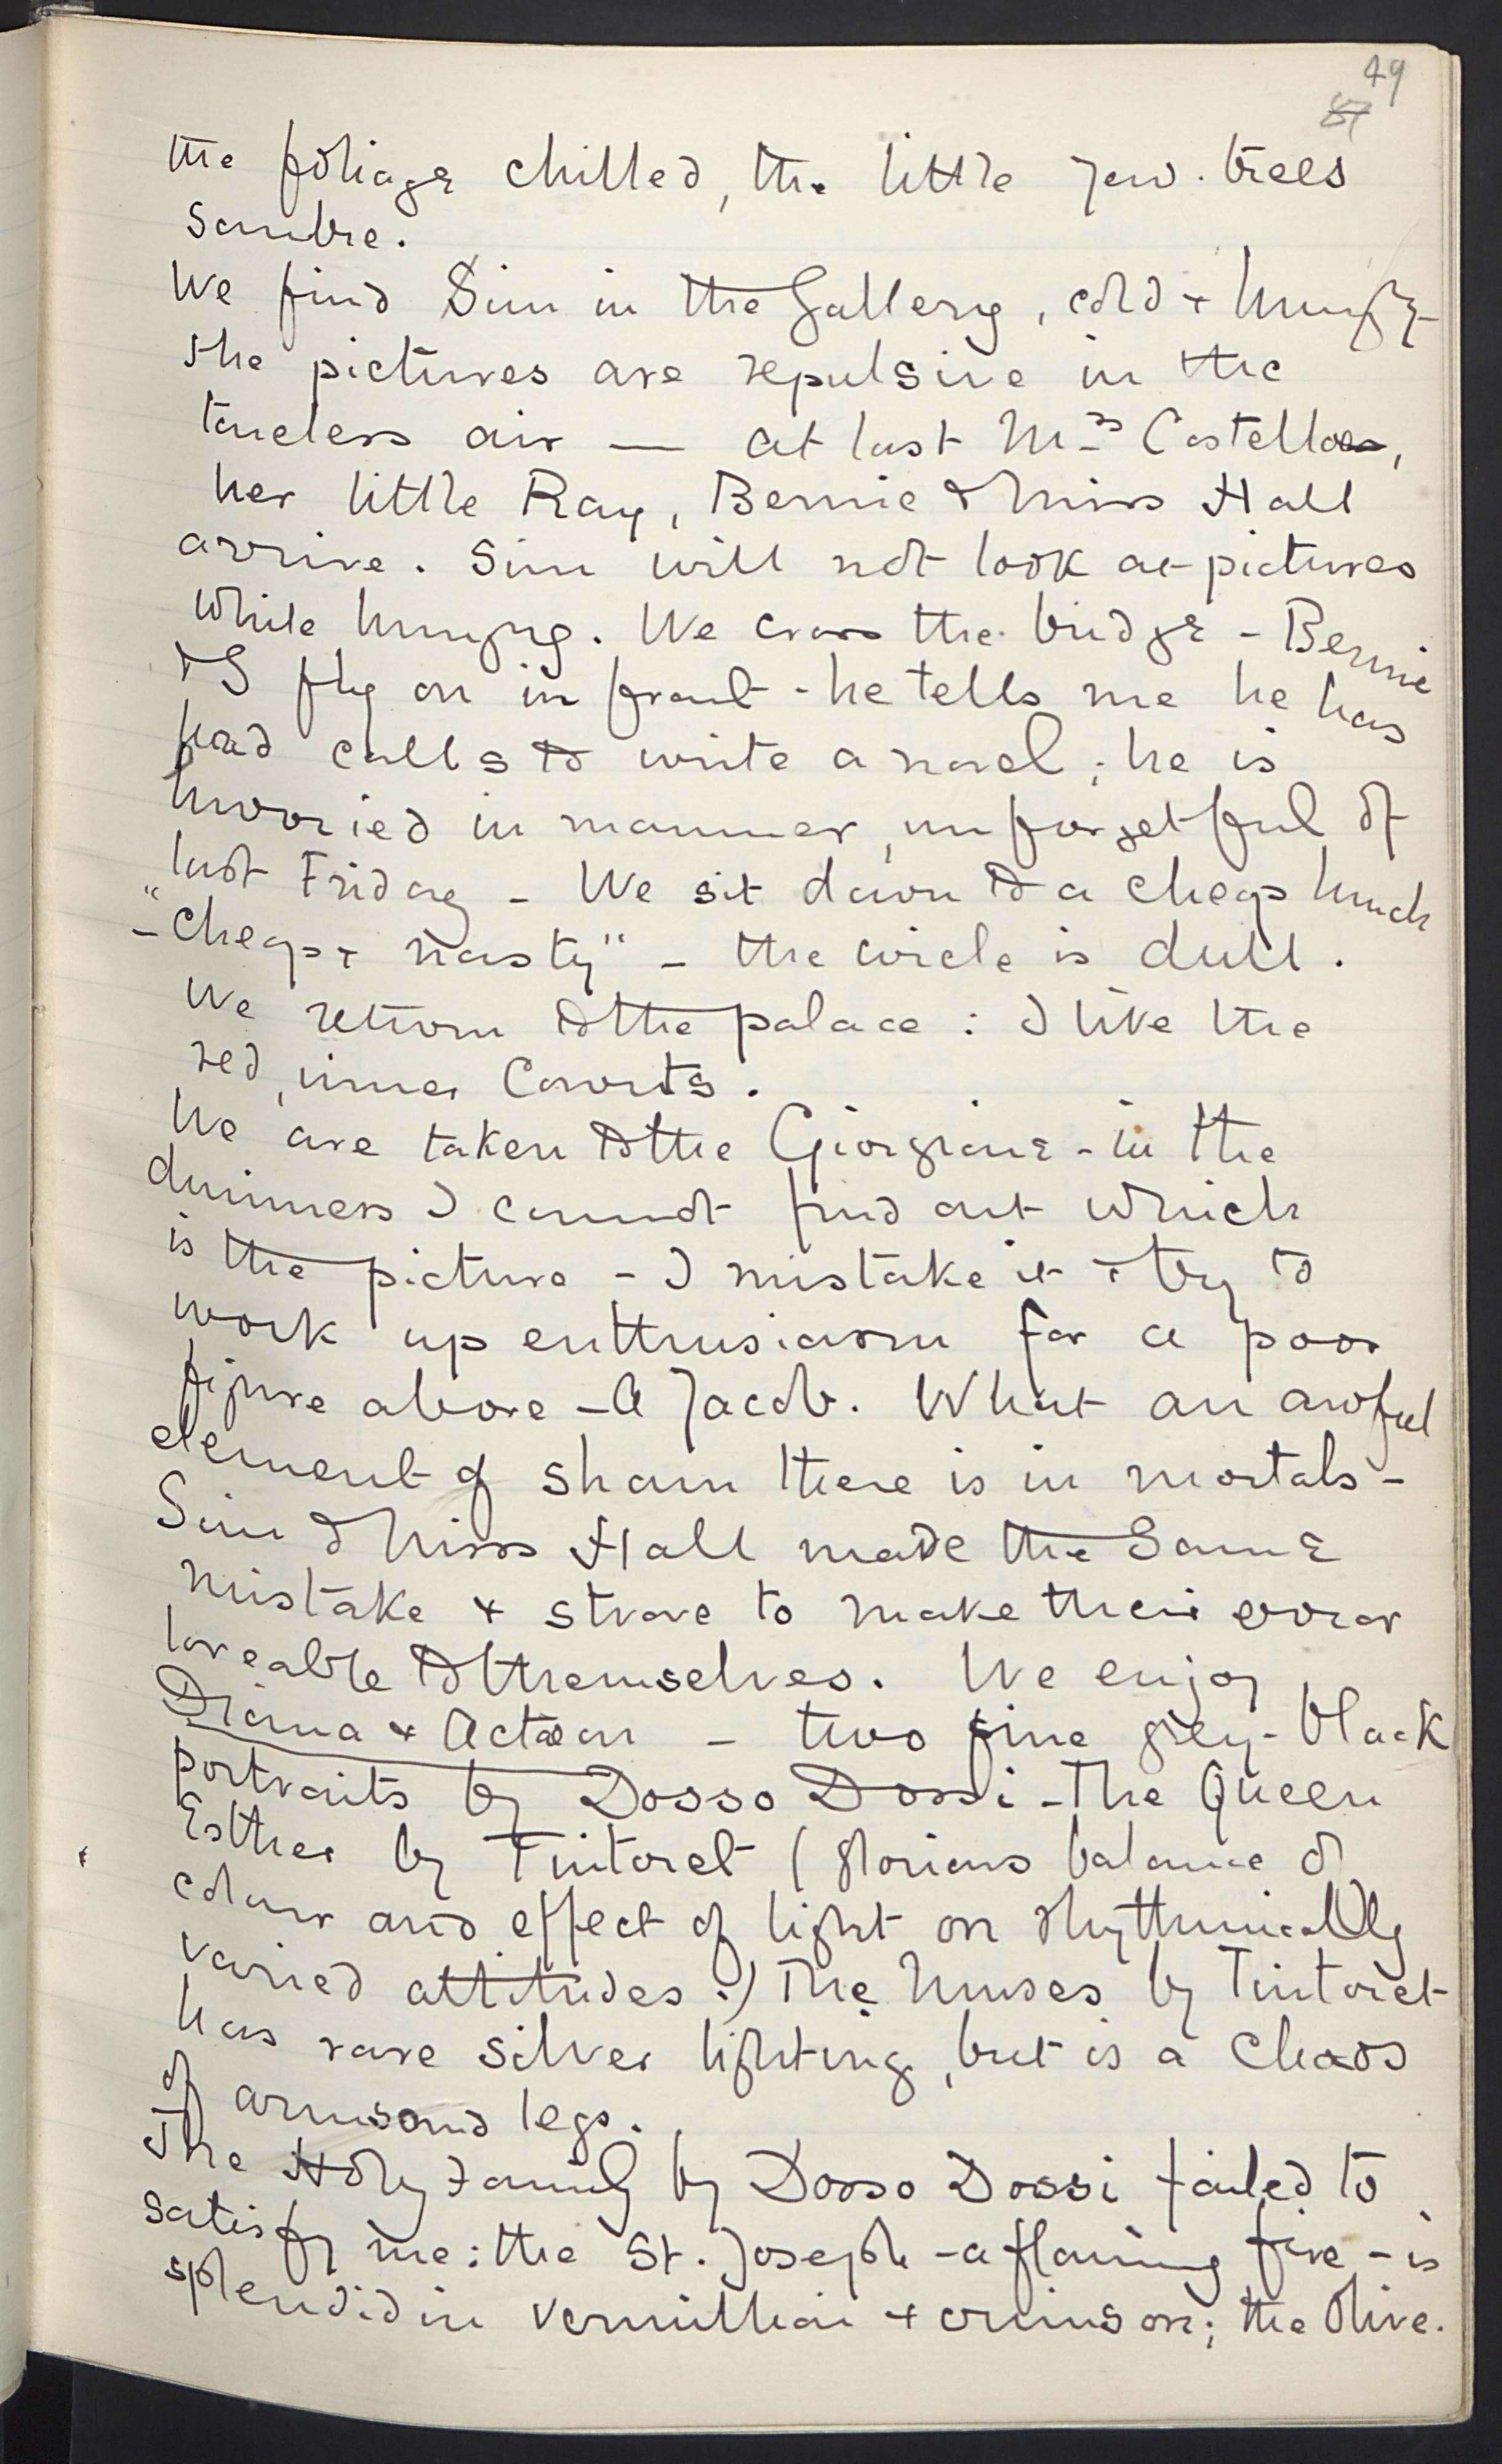 49
87
the foliage chilled, the little yew-trees
sombre.
We find Sim in the Gallery, cold & hungry -
the pictures are repulsive in the
toneless air — at last Mrs Costelloe,
her little Ray, Bernie & Miss Hall
arrive. Sim will not look at pictures
while hungry. We cross the bridge - Bernie
& I fly on in front - he tells me he has
had calls to write a novel; he is
hurried in manner, unforgetful of
last Friday - We sit down to a cheap lunch
- "cheap & nasty" - the circle is dull.
We return to the palace: I like the
red, inner Courts.
We are taken to the Giorgione - in the
dimness I cannot find out which
is the picture - I mistake it & try to
work up enthusiasm for a poor
figure above - a Jacob. What an awful
element of sham there is in mortals -
Sim & Miss Hall made the same
mistake & strove to make their error
loveable to themselves. We enjoy
Diana & Actæon - two fine grey-black
portraits by Dosso Dossi - The Queen
Esther by Tintoret (glorious balance of
colour and effect of light on rhythmically
varied attitudes.) The Muses by Tintoret
has rare silver lighting, but is a chaos
of arms and legs.
The Holy Family by Dosso Dossi failed to
satisfy me: the St. Joseph - a flaming fire - is
splendid in vermillion & crimson; the olive.